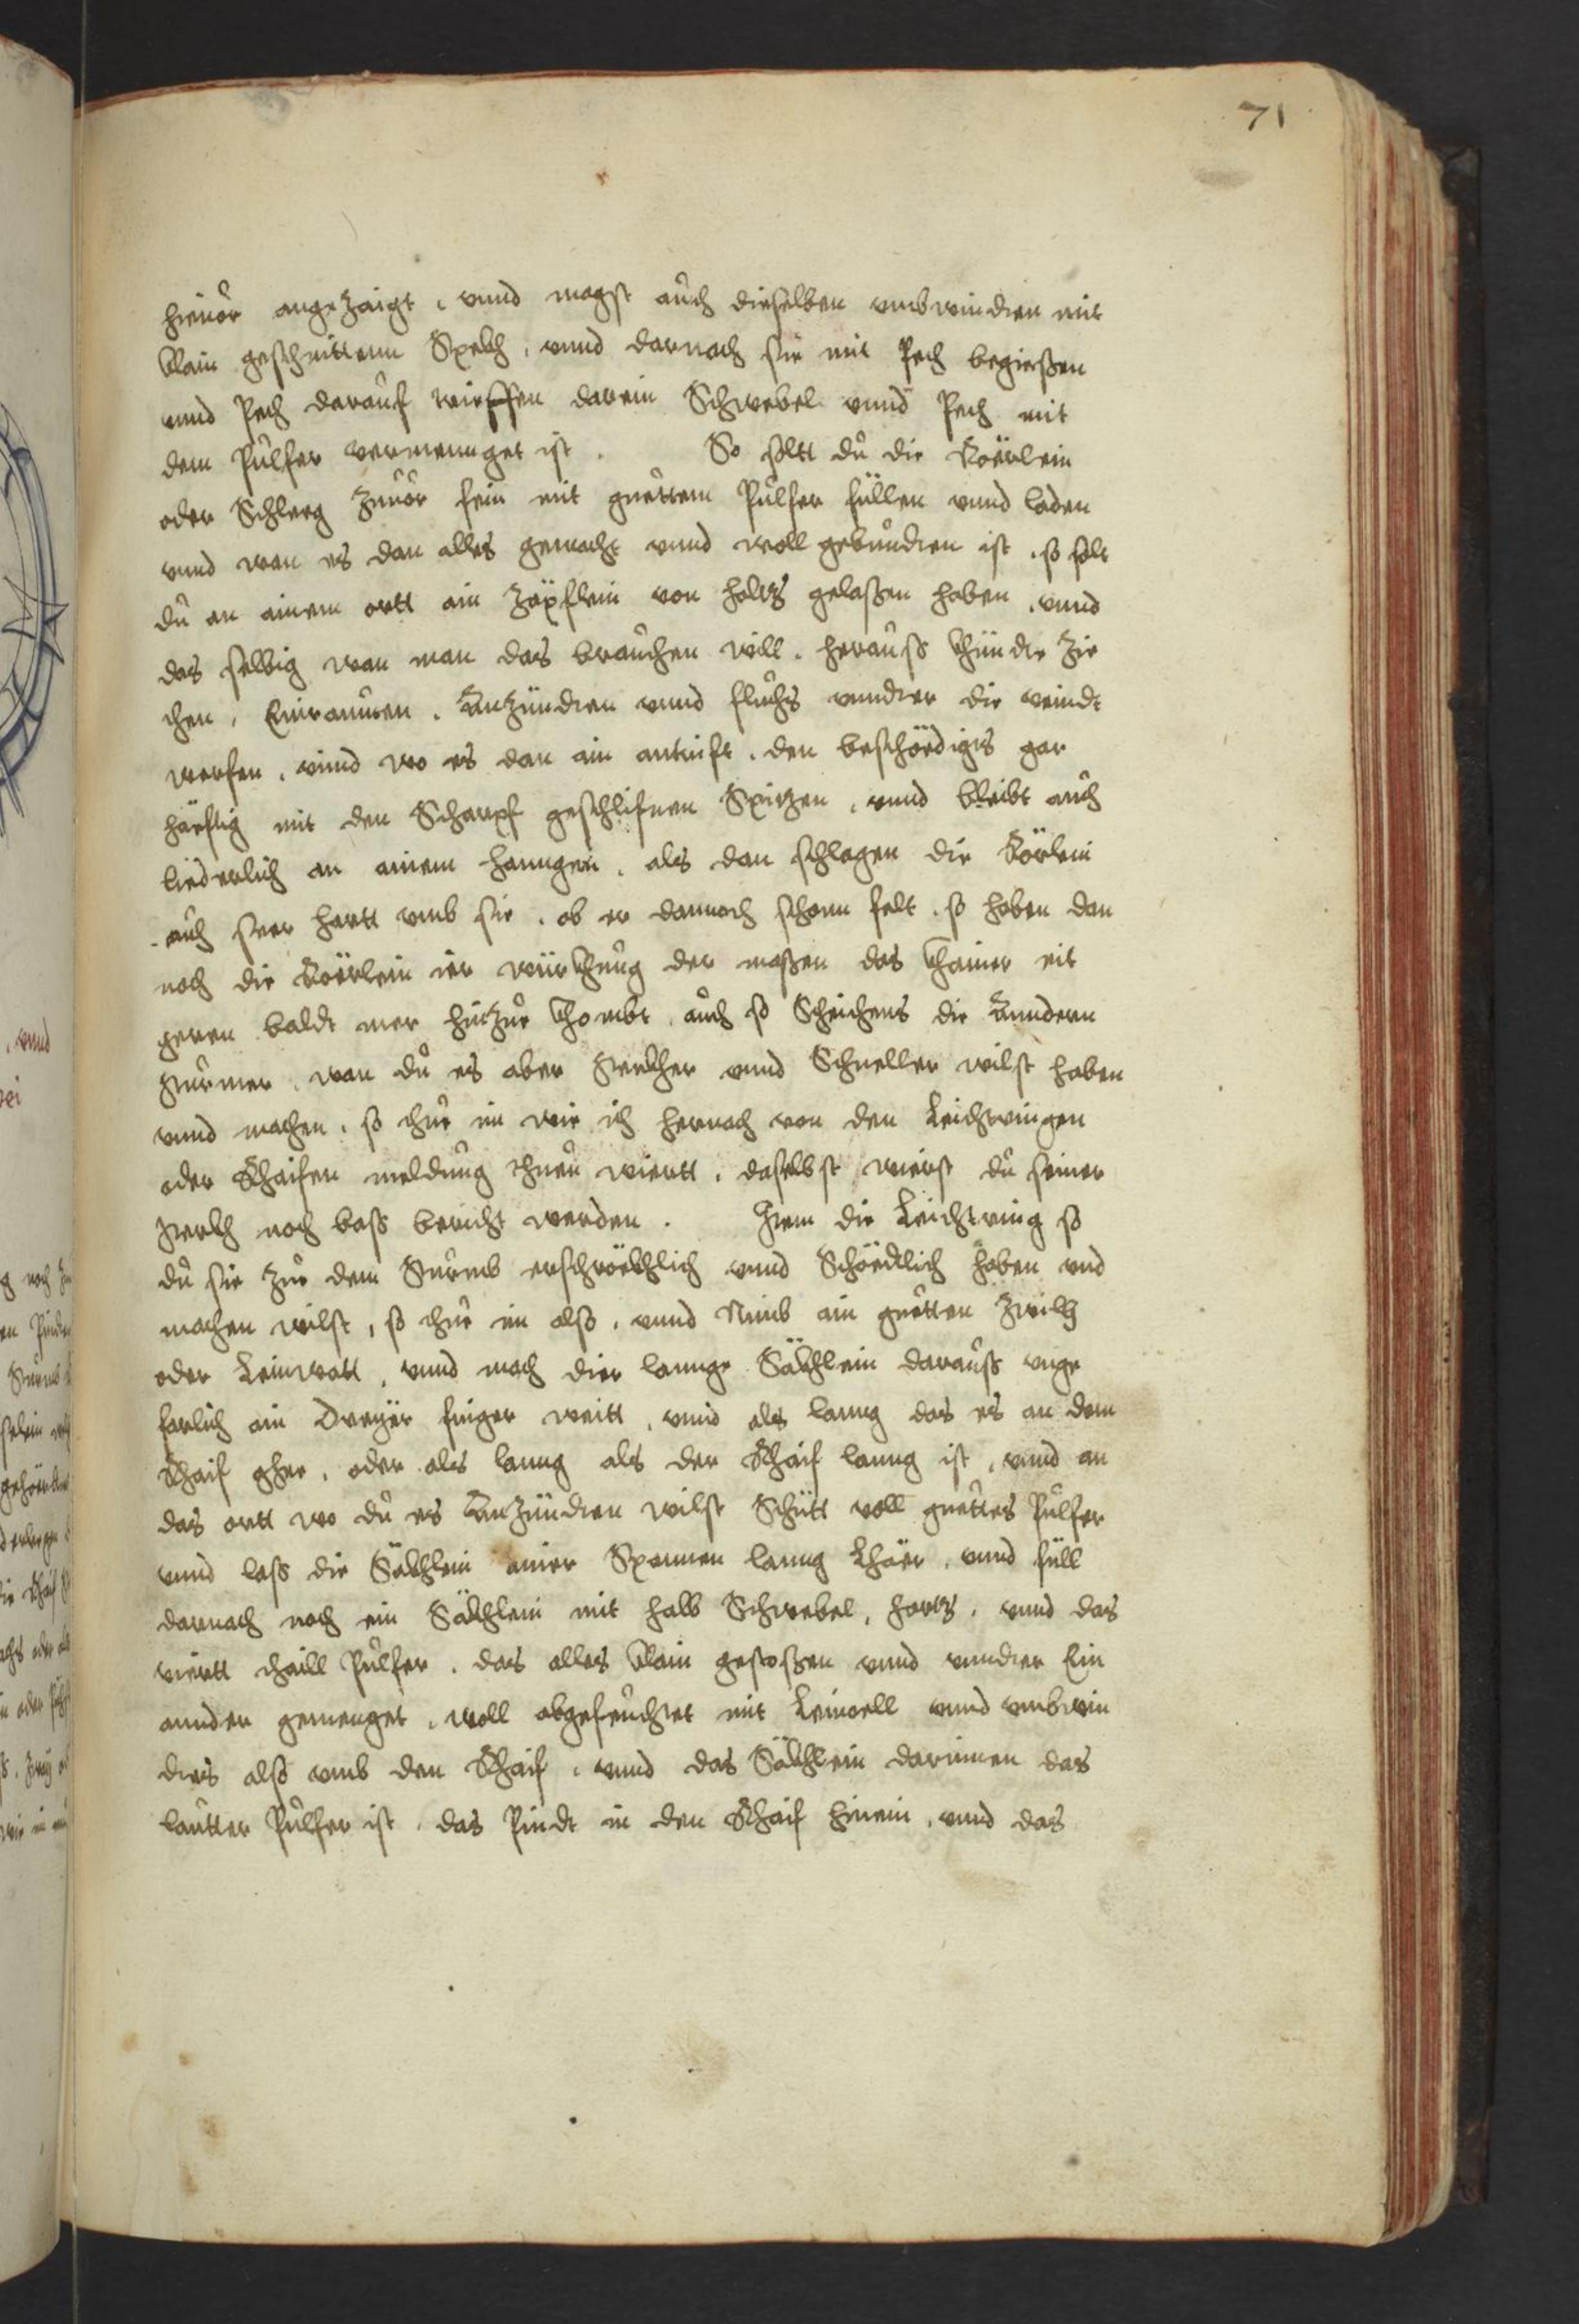 71
hieuor angezaigt, vnnd magst auch dieselben vmbwinden mit
klain geschnittenn Spekh, vnnd darnach sie mit Pech begiessen
vnnd Pech darauf wieffen darein Schwebel vnnd Pech mit
dem Pulfer vermennget ist. So soltt du die Roërlein
oder Schleeg zuuor fein mit guettem Pulfer füllen vnnd laden
vnnd wan es dan alles gemacht vnnd woll gebunden ist, so solt
du an ainem ortt ain Zäpflein von holtz gelassen haben, vnnd
das selbig wan man das brauchen will, herauss khünde Zie
chen, Einraumen, Anzünden vnnd fluchs vnnder die veindt
werfen, vnnd wo es dan ain antrift, den beschödigts gar
häeftig mit den Scharpf geschlifnen Spitzen, vnnd bleibt auch
liederlich an ainem hanngen, als dan schlagen die Rörlein
auch seer hartt vmb sie, ob er dannoch schonn felt, so haben dan
noch die Roërlein ier würkhung der massen das khainer nit
geren baldt mer hinzue khombt, auch so Scheichens die Anndern
Stürmer, wan du es aber Sterkher vnnd Schneller wilst haben
vnnd machen, so thue im wie ich hernach von den Leichtringen
oder Rhaifen meldung thuen wiertt, daselbst wierst du seiner
Sterkh noch bass bericht werden. Item die Leichtring so
du sie zue dem Sturmb erschrökhlich vnnd Schödlich haben vnd
machen wilst, so thue im also, vnnd Nimb ain guetten Zwilh
oder Leinwatt, vnnd mach dier lannge Säkhlein darauss vnge
farlich ain Dreyer finger weitt, vnnd als lanng das es an dem
Rhaif gher, oder als lanng als der Rhaif lanng ist, vnnd an
das ortt wo du es Anzünden wilst Schütt voll guettes Pulfer
vnnd lass die Säkhlein ainer Spannen lanng Lhäer, vnnd füll
darnach noch ein Säkhlein mit halb Schwebel, hartz, vnnd das
viertt thaill Pulfer, das alles klain gestossen vnnd vnnder Ein
annder gemenget, woll abgefeuchtet mit Leinoell vnnd vmbwin
dets also vmb den Rhaif, vnnd das Säkhlein darinnen das
lautter Pulfer ist, das Pindt in den Rhaif hinein, vnnd das